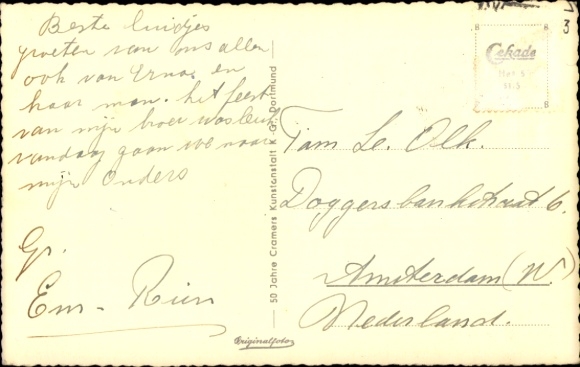 Beste luidjes
groeten van ons allen
ook van Erna en
haar man. het feest
van mijn broer was leuk
vandaag gaan we naar
mijn Ouders
Gr.
Em - Rien
50 Jahre Cramers Kunstanstalt K.-G., Dortmund
Originalfoto
Cekade
8
8
8
8
3
Fam Le. Olk.
Doggersbankstraat 6.
Amsterdam (W)
Nederland.